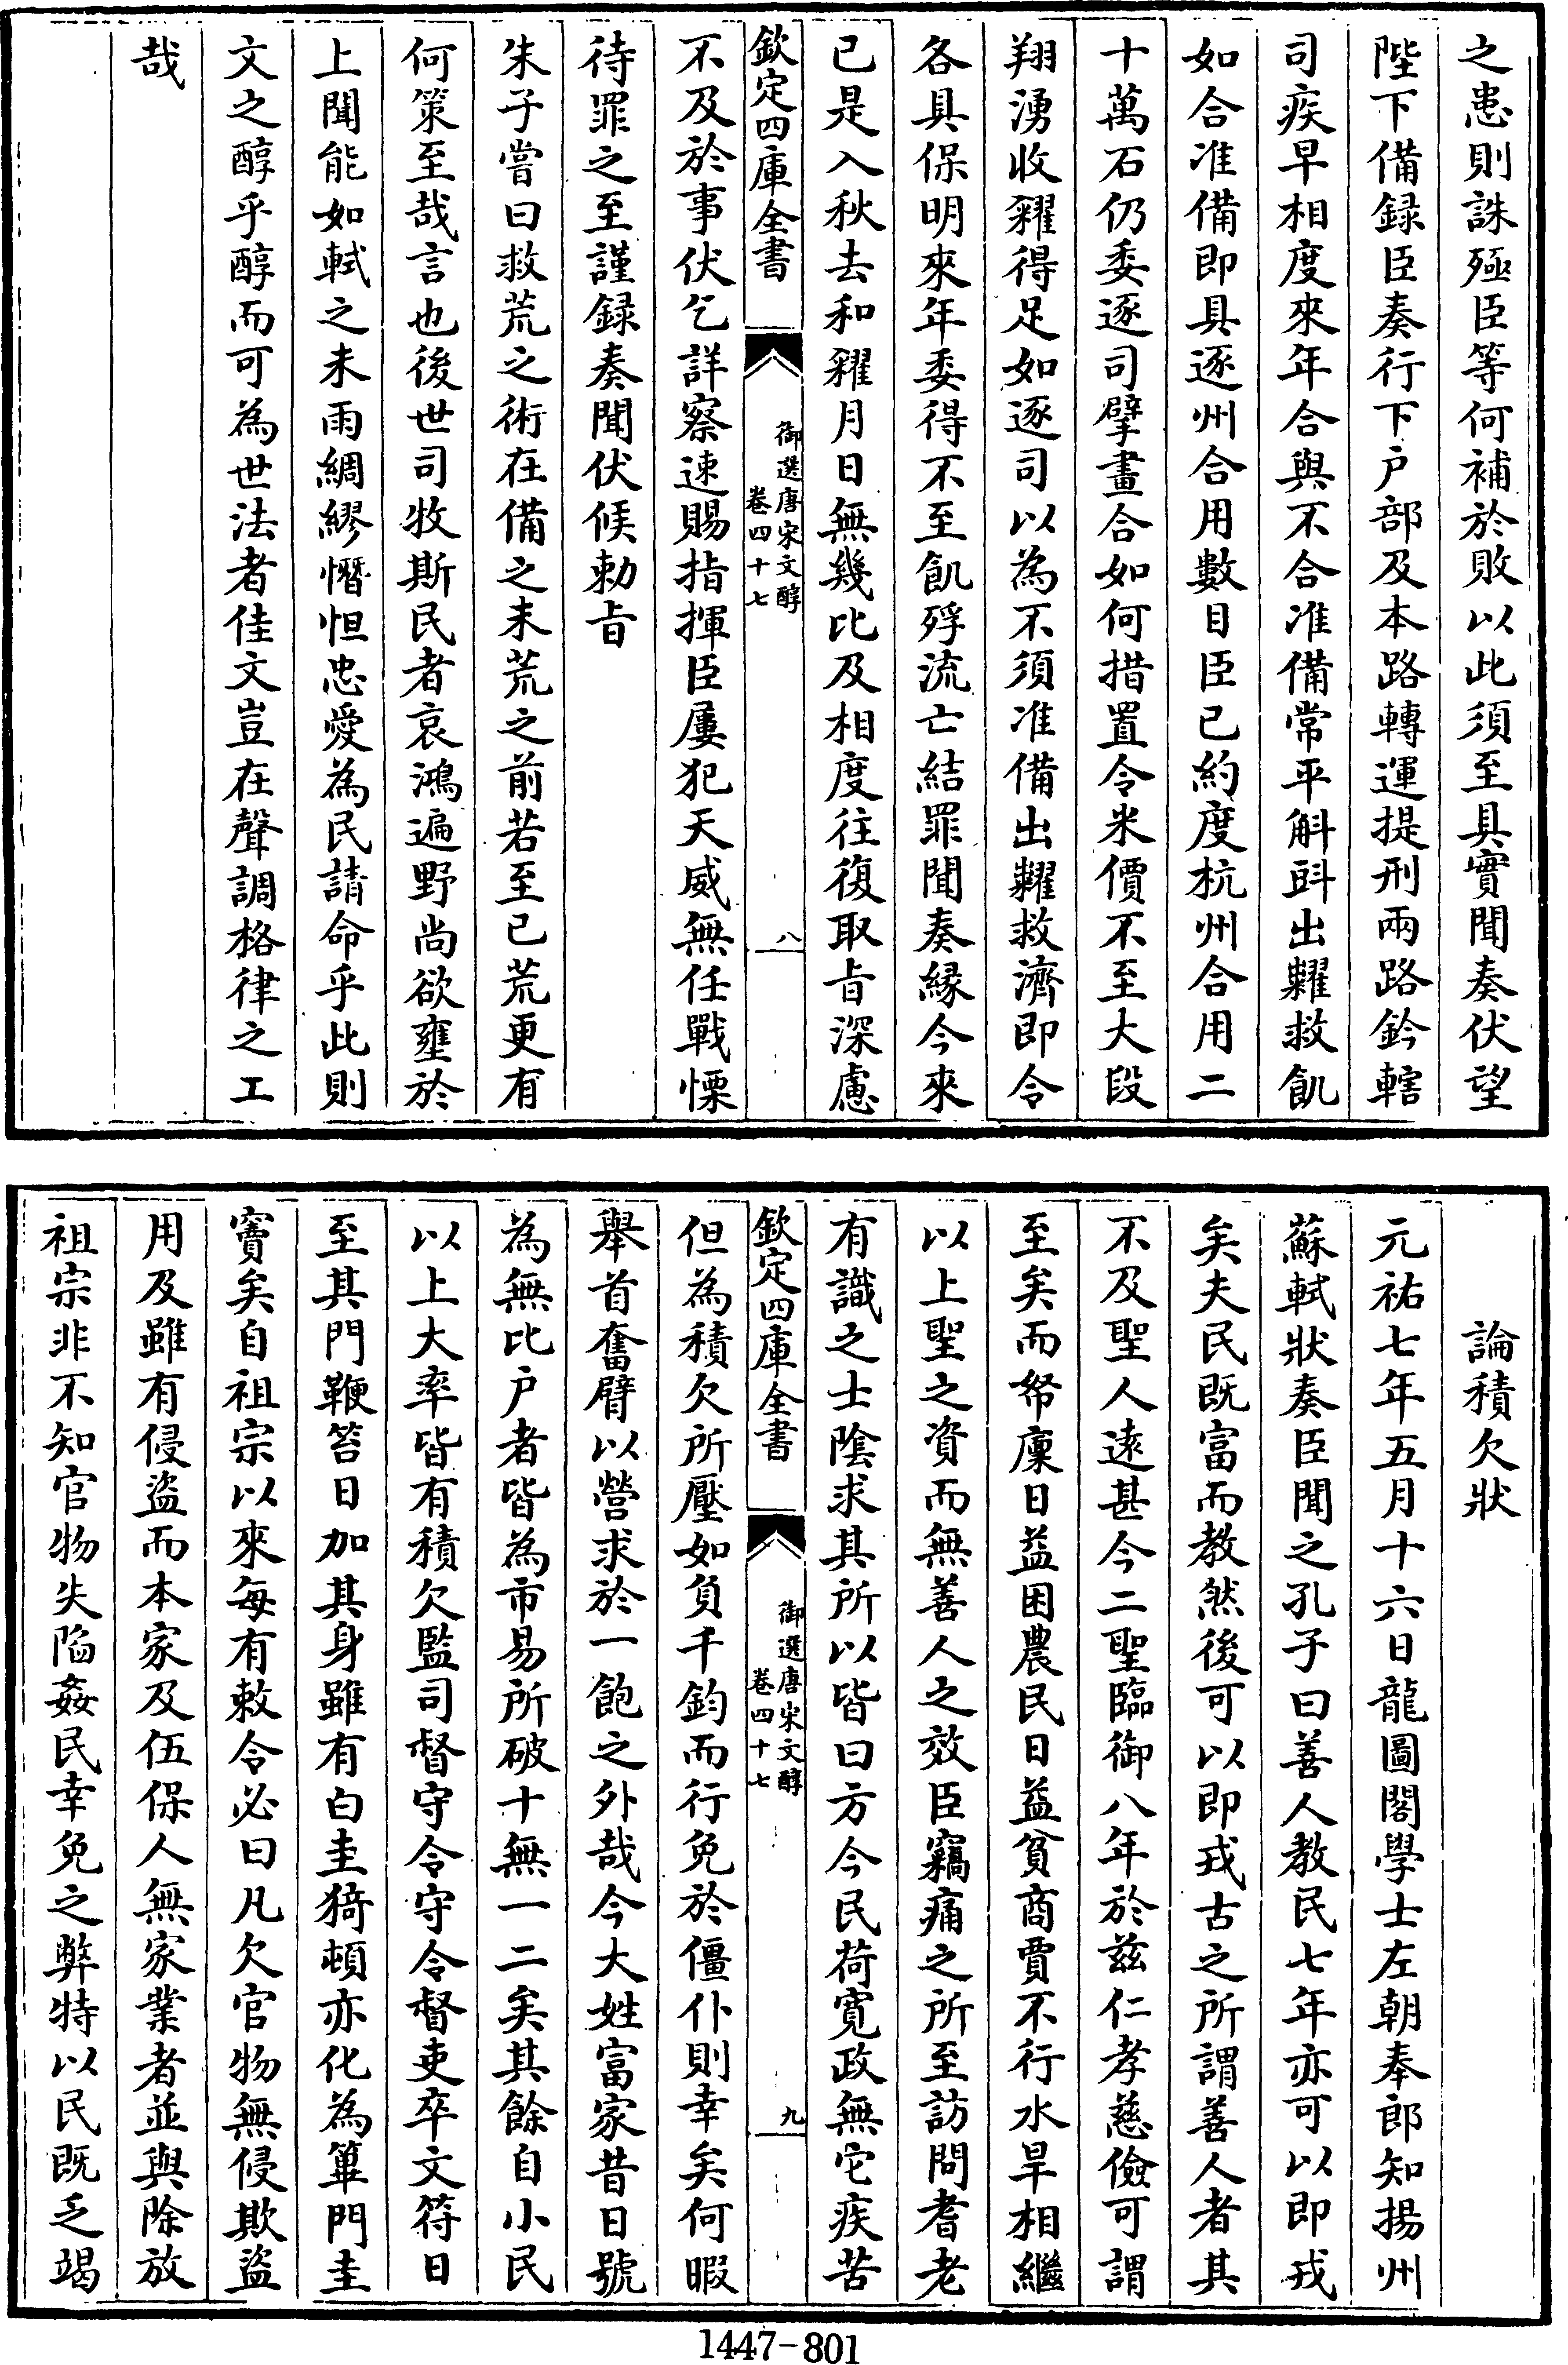 之患則誅殛臣等何補於敗以此須至具實聞奏伏望
陛下備録臣奏行下戸部及本路轉運提刑兩路鈐轄
司疾早相度來年合與不合准備常平斛㪷出糶救飢
如合准備即具逐州合用數目臣已約度杭州合用二
十萬石仍委逐司擘畫合如何措置令米價不至大段
翔湧收糴得足如逐司以為不須准備出糶救濟即令
各具保明來年委得不至飢殍流亡結罪聞奏縁今來
已是入秋去和糴月日無幾比及相度往復取㫖深慮
欽定四庫全書
御選唐宋文醇
卷四十七
八
不及於事伏乞詳察速賜指揮臣屢犯天威無任戰慄
待罪之至謹録奏聞伏候勅㫖
朱子嘗曰救荒之術在備之未荒之前若至已荒更有
何策至哉言也後世司牧斯民者哀鴻遍野尚欲壅於
上聞能如軾之未雨綢繆憯怛忠愛為民請命乎此則
文之醇乎醇而可為世法者佳文豈在聲調格律之工
哉
論積欠狀
元祐七年五月十六日龍圖閣學士左朝奉郎知揚州
蘇軾狀奏臣聞之孔子曰善人教民七年亦可以即戎
矣夫民既富而教然後可以即戎古之所謂善人者其
不及聖人逺甚今二聖臨御八年於兹仁孝慈儉可謂
至矣而帑廩日益困農民日益貧商賈不行水旱相繼
以上聖之資而無善人之效臣竊痛之所至訪問耆老
有識之士陰求其所以皆曰方今民荷寛政無它疾苦
欽定四庫全書
御選唐宋文醇
卷四十七
九
但為積欠所壓如負千鈞而行免於僵仆則幸矣何暇
舉首奮臂以營求於一飽之外哉今大姓富家昔日號
為無比户者皆為市易所破十無一二矣其餘自小民
以上大率皆有積欠監司督守令守令督吏卒文符日
至其門鞭笞日加其身雖有白圭猗頓亦化為篳門圭
竇矣自祖宗以來每有赦令必曰凡欠官物無侵欺盜
用及雖有侵盜而本家及伍保人無家業者並與除放
祖宗非不知官物失陷姦民幸免之弊特以民既乏竭
1447-801